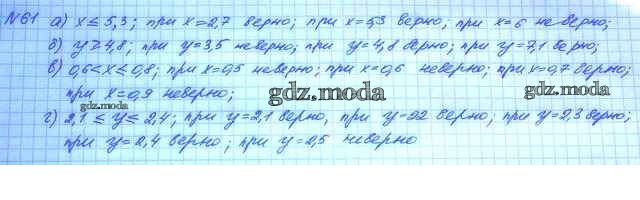 №61 а) x ≤ 5,3; при x=2,7 верно; при x=5,3 верно; при x=6 неверно;
б) y ≥ 4,8; при y=3,5 неверно; при y=4,8 верно; при y=7,1 верно;
в) 0,6 < x ≤ 0,8; при x=0,5 неверно; при x=0,6 неверно; при x=0,7 верно;
при x=0,9 неверно;
gdz.moda
gdz.moda
gdz.moda
г) 2,1 ≤ y ≤ 2,4; при y=2,1 верно, при y=22 верно; при y=2,3 верно;
при y=2,4 верно; при y=2,5 неверно